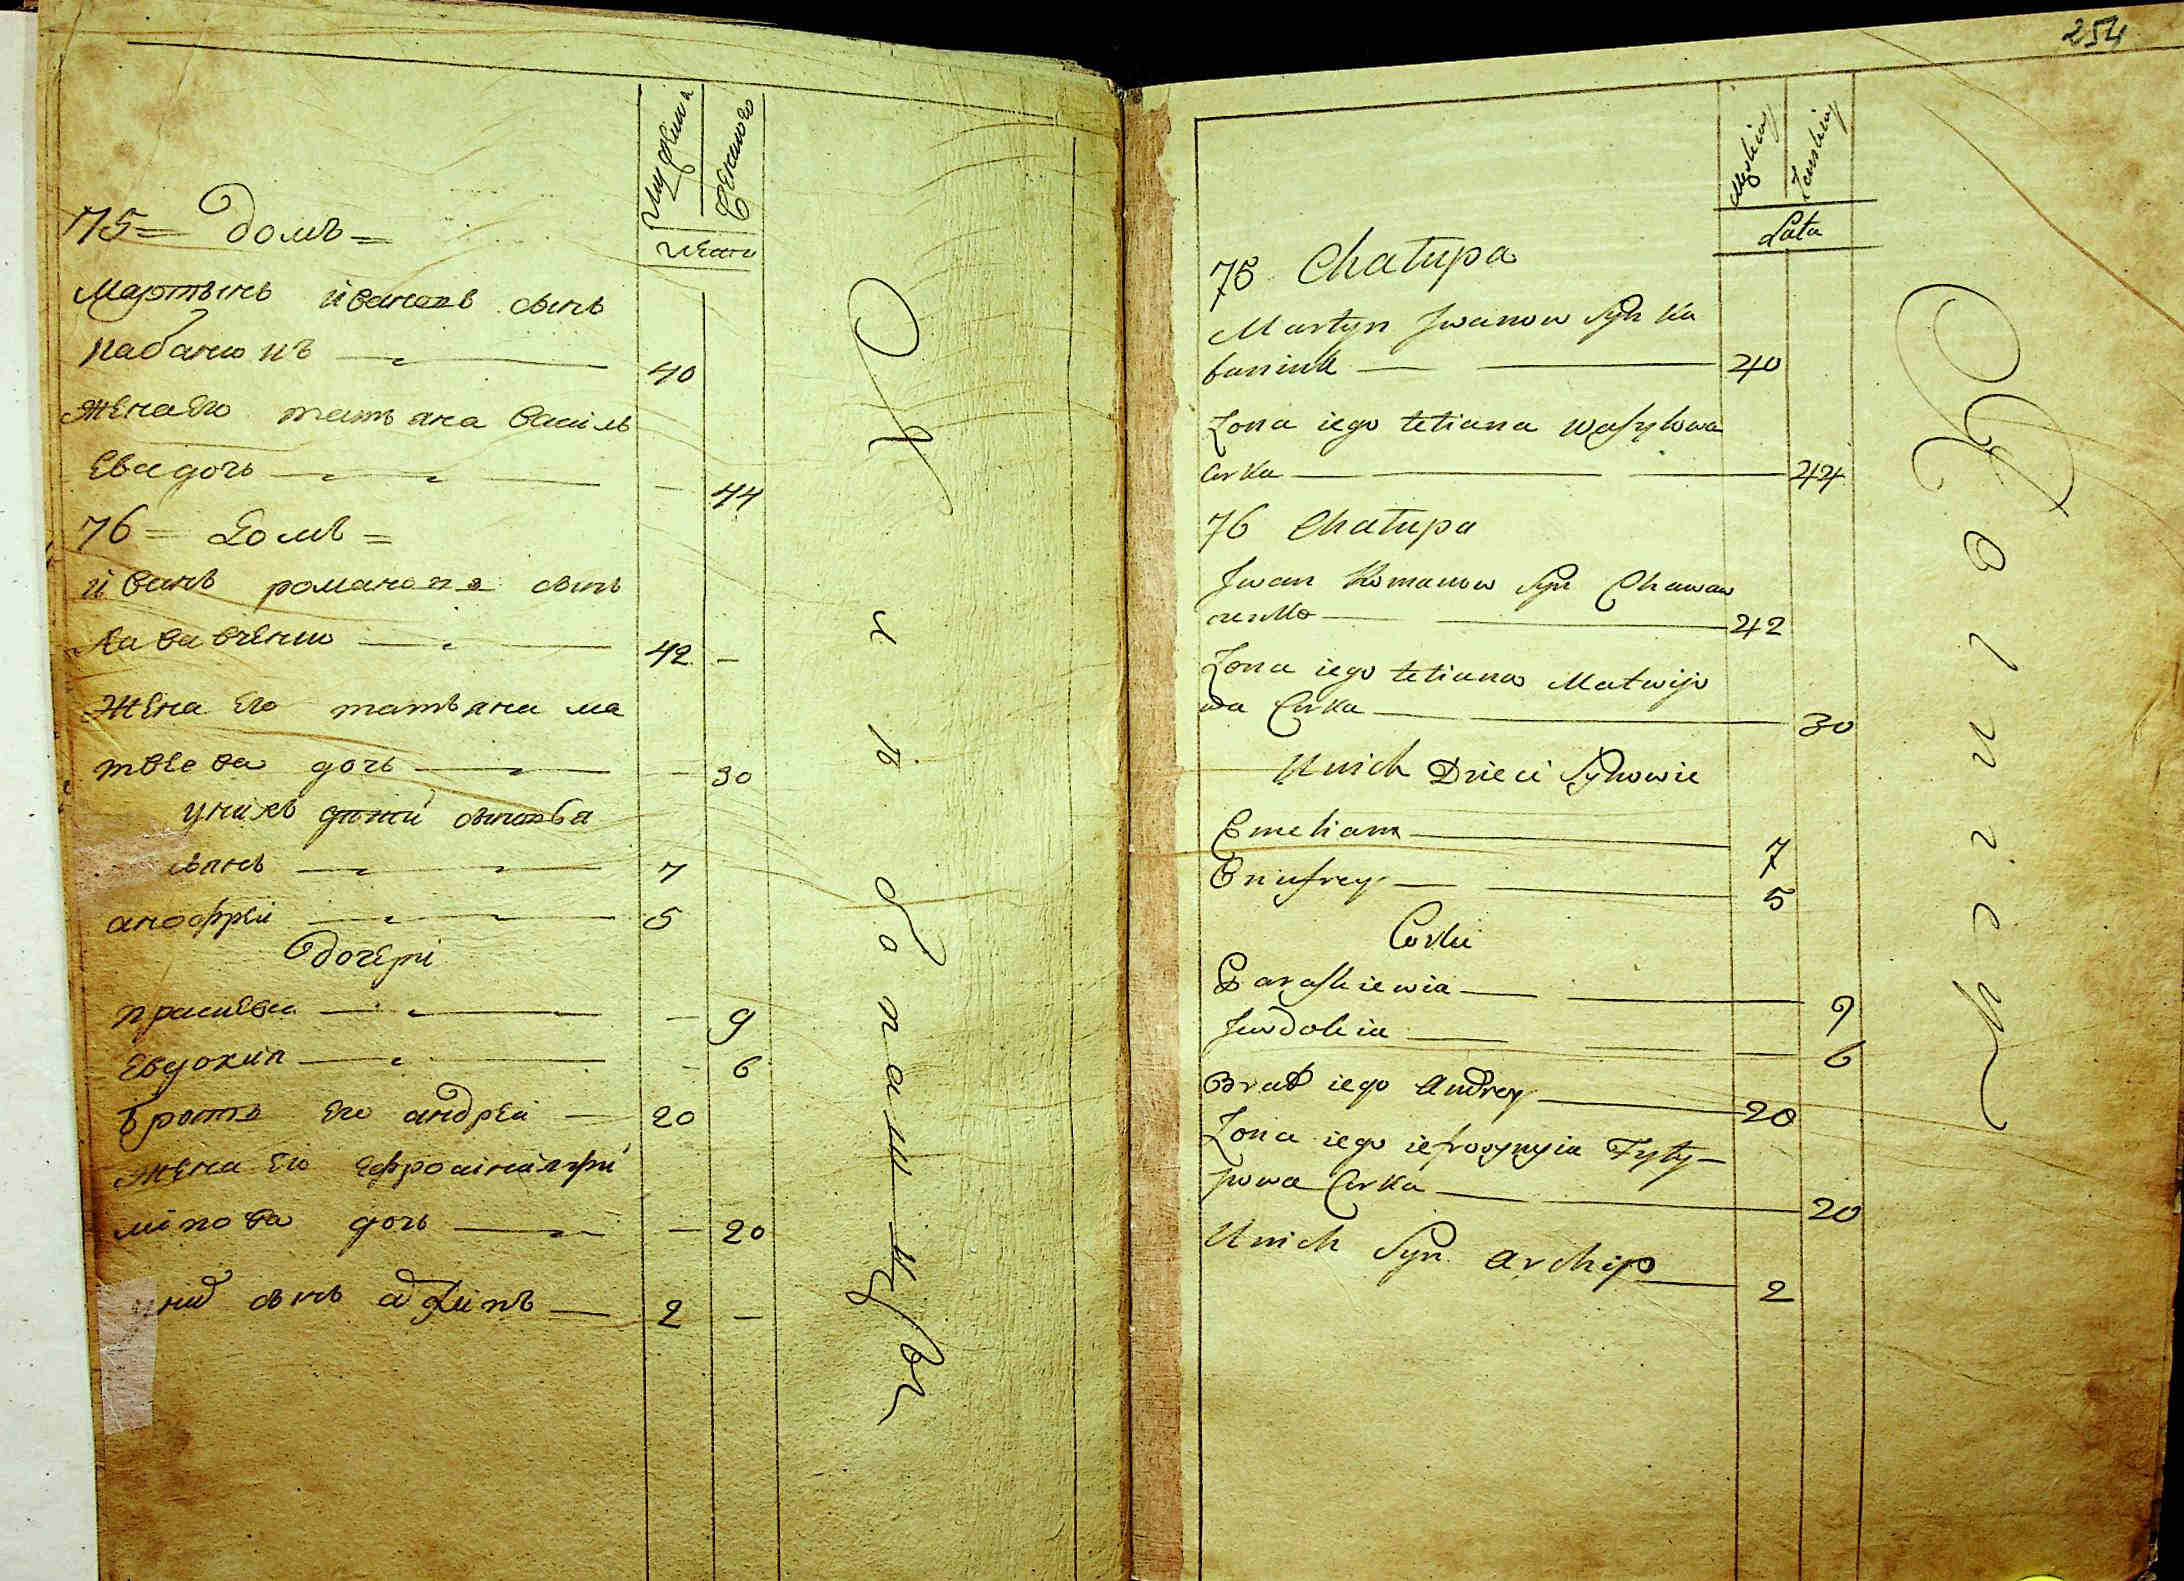 мужеска
женского
лета
75 = домъ =
Мартынъ ивановъ сынъ
кабанюкъ 40
жена его татьяна василь
ева дочь — 44
76 = домъ =
иванъ романовъ сынъ
42 —
жена его татьяна ма
твеева дочь — 30
у нихъ дѣти сыновья
7
анофрей 5
дочери
прасковея — 9
евдокия — 6
братъ его андрей — 20
жена его ефросиния фи
липова дочь — 20
сынъ архипъ — 2 —
254
Męskiey
Żenskiey
Lata
75 Chałupa
Martyn Jwanow Syn Ka
baniuk 40
Żona iego tetiana Wasylowa
Corka 44
76 Chałupa
Jwan Romanow Syn
42
Żona iego tetiana Matwijo
wa Corka 30
U nich Dzieci Synowie
Emelian 7
Eniufrey 5
Corki
Paraskiewia 9
Jewdokia 6
Brat iego Andrey 20
Żona iego iefrosynyia Fyły-
powa Corka 20
U nich Syn Archip 2